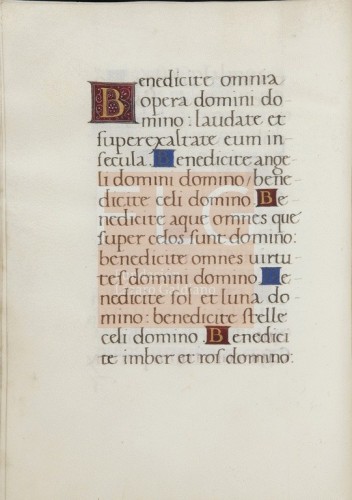 Benedicite omnia
opera domini do
mino: laudate et
superexaltate eum in
secula. Benedicite ange
li domini domino/ bene
dicite celi domino. Be
nedicite aque omnes que
super celos sunt domino:
benedicite omnes uirtu
tes domini domino. Be
nedicite sol et luna do
mino: benedicite stelle
celi domino. Benedici
te imber et ros domino:
FLG